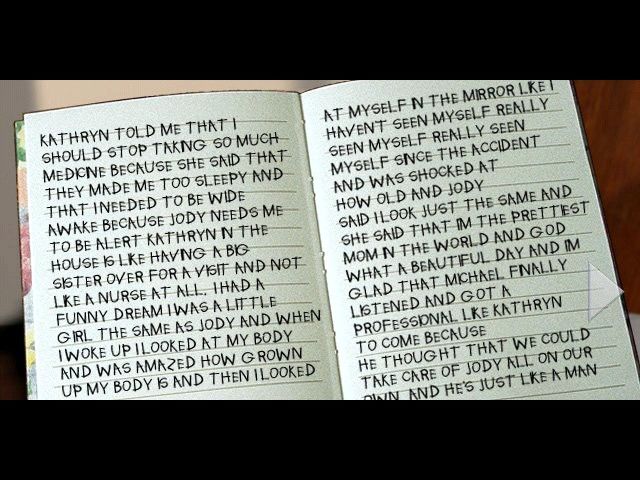 KATHRYN TOLD ME THAT I
SHOULD STOP TAKING SO MUCH
MEDICINE BECAUSE SHE SAID THAT
THEY MADE ME TOO SLEEPY AND
THAT I NEEDED TO BE WIDE
AWAKE BECAUSE JODY NEEDS ME
TO BE ALERT KATHRYN IN THE
HOUSE IS LIKE HAVING A BIG
SISTER OVER FOR A VISIT AND NOT
LIKE A NURSE AT ALL. I HAD A
FUNNY DREAM I WAS A LITTLE
GIRL THE SAME AS JODY AND WHEN
I WOKE UP I LOOKED AT MY BODY
AND WAS AMAZED HOW GROWN
UP MY BODY IS AND THEN I LOOKED
AT MYSELF IN THE MIRROR LIKE I
HAVENT SEEN MYSELF REALLY
SEEN MYSELF REALLY SEEN
MYSELF SINCE THE ACCIDENT
AND WAS SHOCKED AT
HOW OLD AND JODY
SAID I LOOK JUST THE SAME AND
SHE SAID THAT IM THE PRETTIEST
MOM IN THE WORLD AND GOD
WHAT A BEAUTIFUL DAY AND IM
GLAD THAT MICHAEL FINALLY
LISTENED AND GOT A
PROFESSIONAL LIKE KATHRYN
TO COME BECAUSE
HE THOUGHT THAT WE COULD
TAKE CARE OF JODY ALL ON OUR
OWN AND HE'S JUST LIKE A MAN